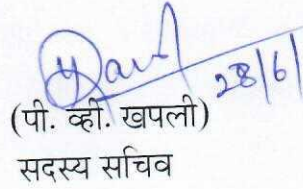 28/6/
(पी. व्ही. खपली)
सदस्य सचिव